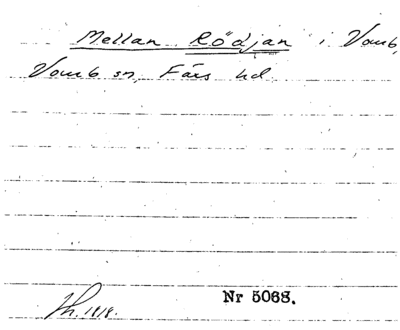 Mellan Rödjan i Vomb,
Vomb sn, Färs hd
Nr 5068.